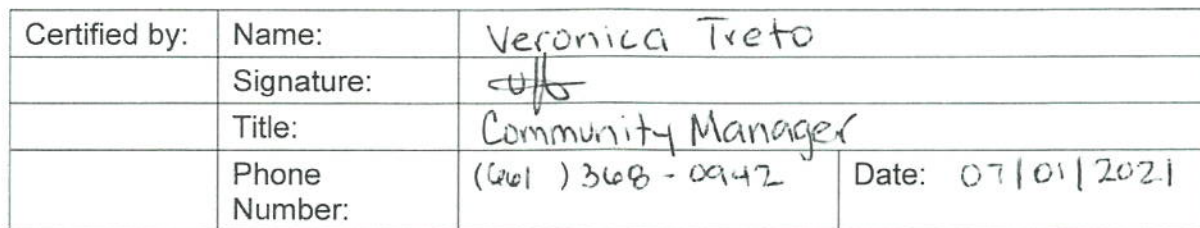 Certified by: Name: Veronica Treto
Signature:
Title: Community Manager
Phone (661 ) 368 - 0942 Date: 07/01/2021
Number: